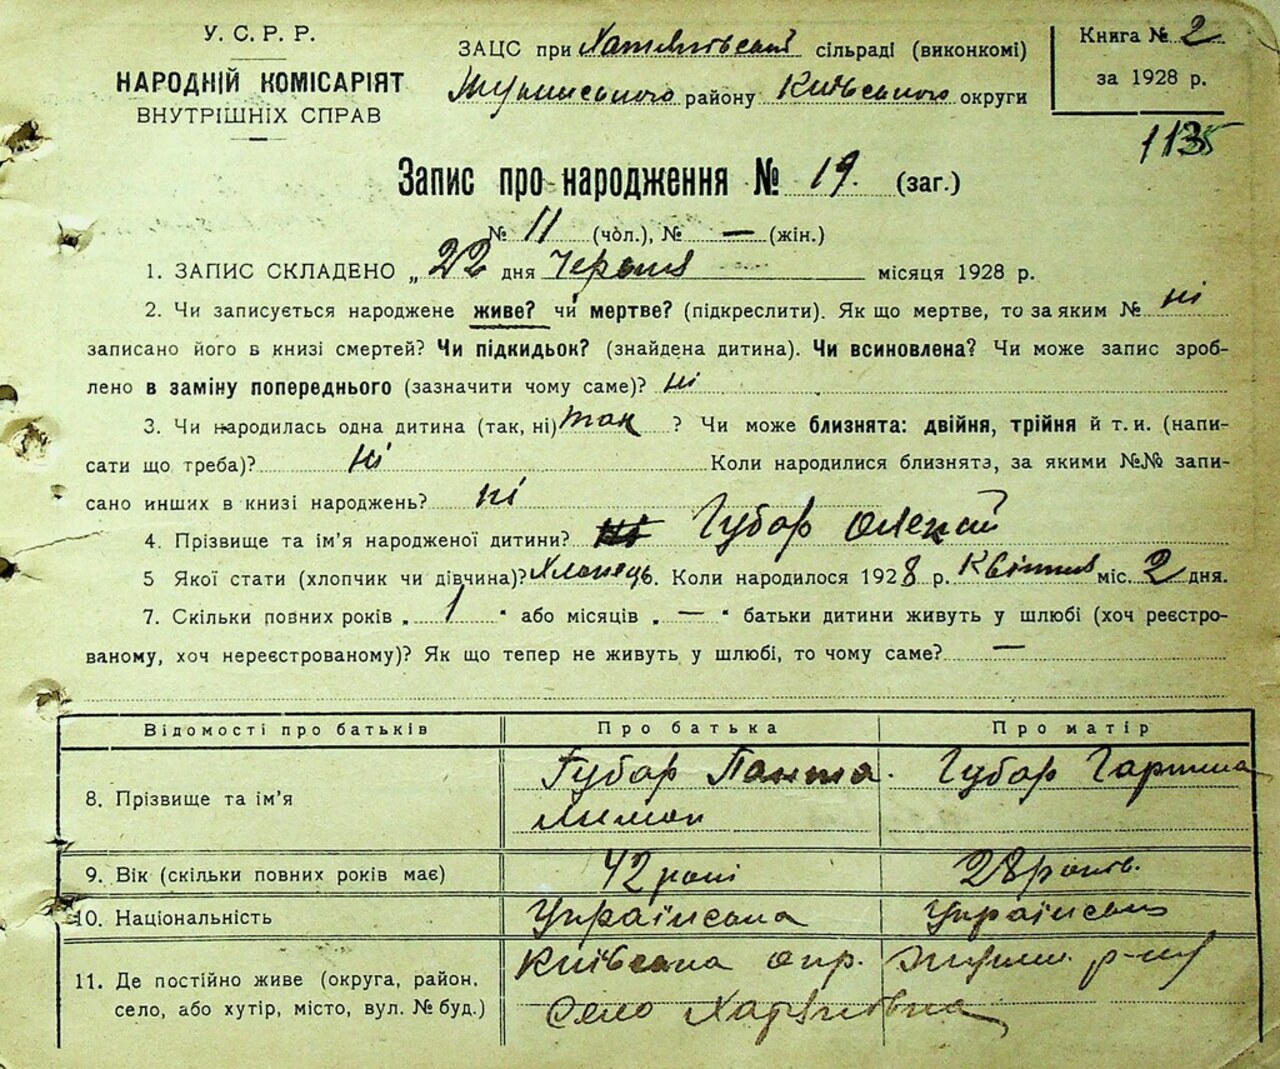 У. С. Р. Р.
НАРОДНІЙ КОМІСАРІЯТ
ВНУТРІШНІХ СПРАВ
ЗАЦС при сільраді (виконкомі)
району Київського округи
Книга № 2
за 1928 р.
113
Запис про народження № 19. (заг.)
№ 11 (чол.), № — (жін.)
1. ЗАПИС СКЛАДЕНО „ 22 дня Червня місяця 1928 р.
2. Чи записується народжене живе? чи мертве? (підкреслити). Як що мертве, то за яким № ні
записано його в книзі смертей? Чи підкидьок? (знайдена дитина). Чи всиновлена? Чи може запис зроб-
лено в заміну попереднього (зазначити чому саме)? ні
3. Чи народилась одна дитина (так, ні) так ? Чи може близнята: двійня, трійня й т. и. (напи-
сати що треба)? ні Коли народилися близнята, за якими №№ запи-
сано инших в книзі народжень? ні
4. Прізвище та ім’я народженої дитини? Губар Олексій
5 Якої стати (хлопчик чи дівчина)? Хлопець. Коли народилося 1928 р. Квітня міс. 2 дня.
7. Скільки повних років „ 1 “ або місяців „ — “ батьки дитини живуть у шлюбі (хоч реєстро-
ваному, хоч нереєстрованому)? Як що тепер не живуть у шлюбі, то чому саме? —
Відомості про батьків Про батька Про матір
8. Прізвище та ім’я Губар Панте Губар
лимон
9. Вік (скільки повних років має) 42 роки 28 років.
10. Національність Українська Українська
11. Де постійно живе (округа, район, Київська окр. р-ну
село, або хутір, місто, вул. № буд.) Село